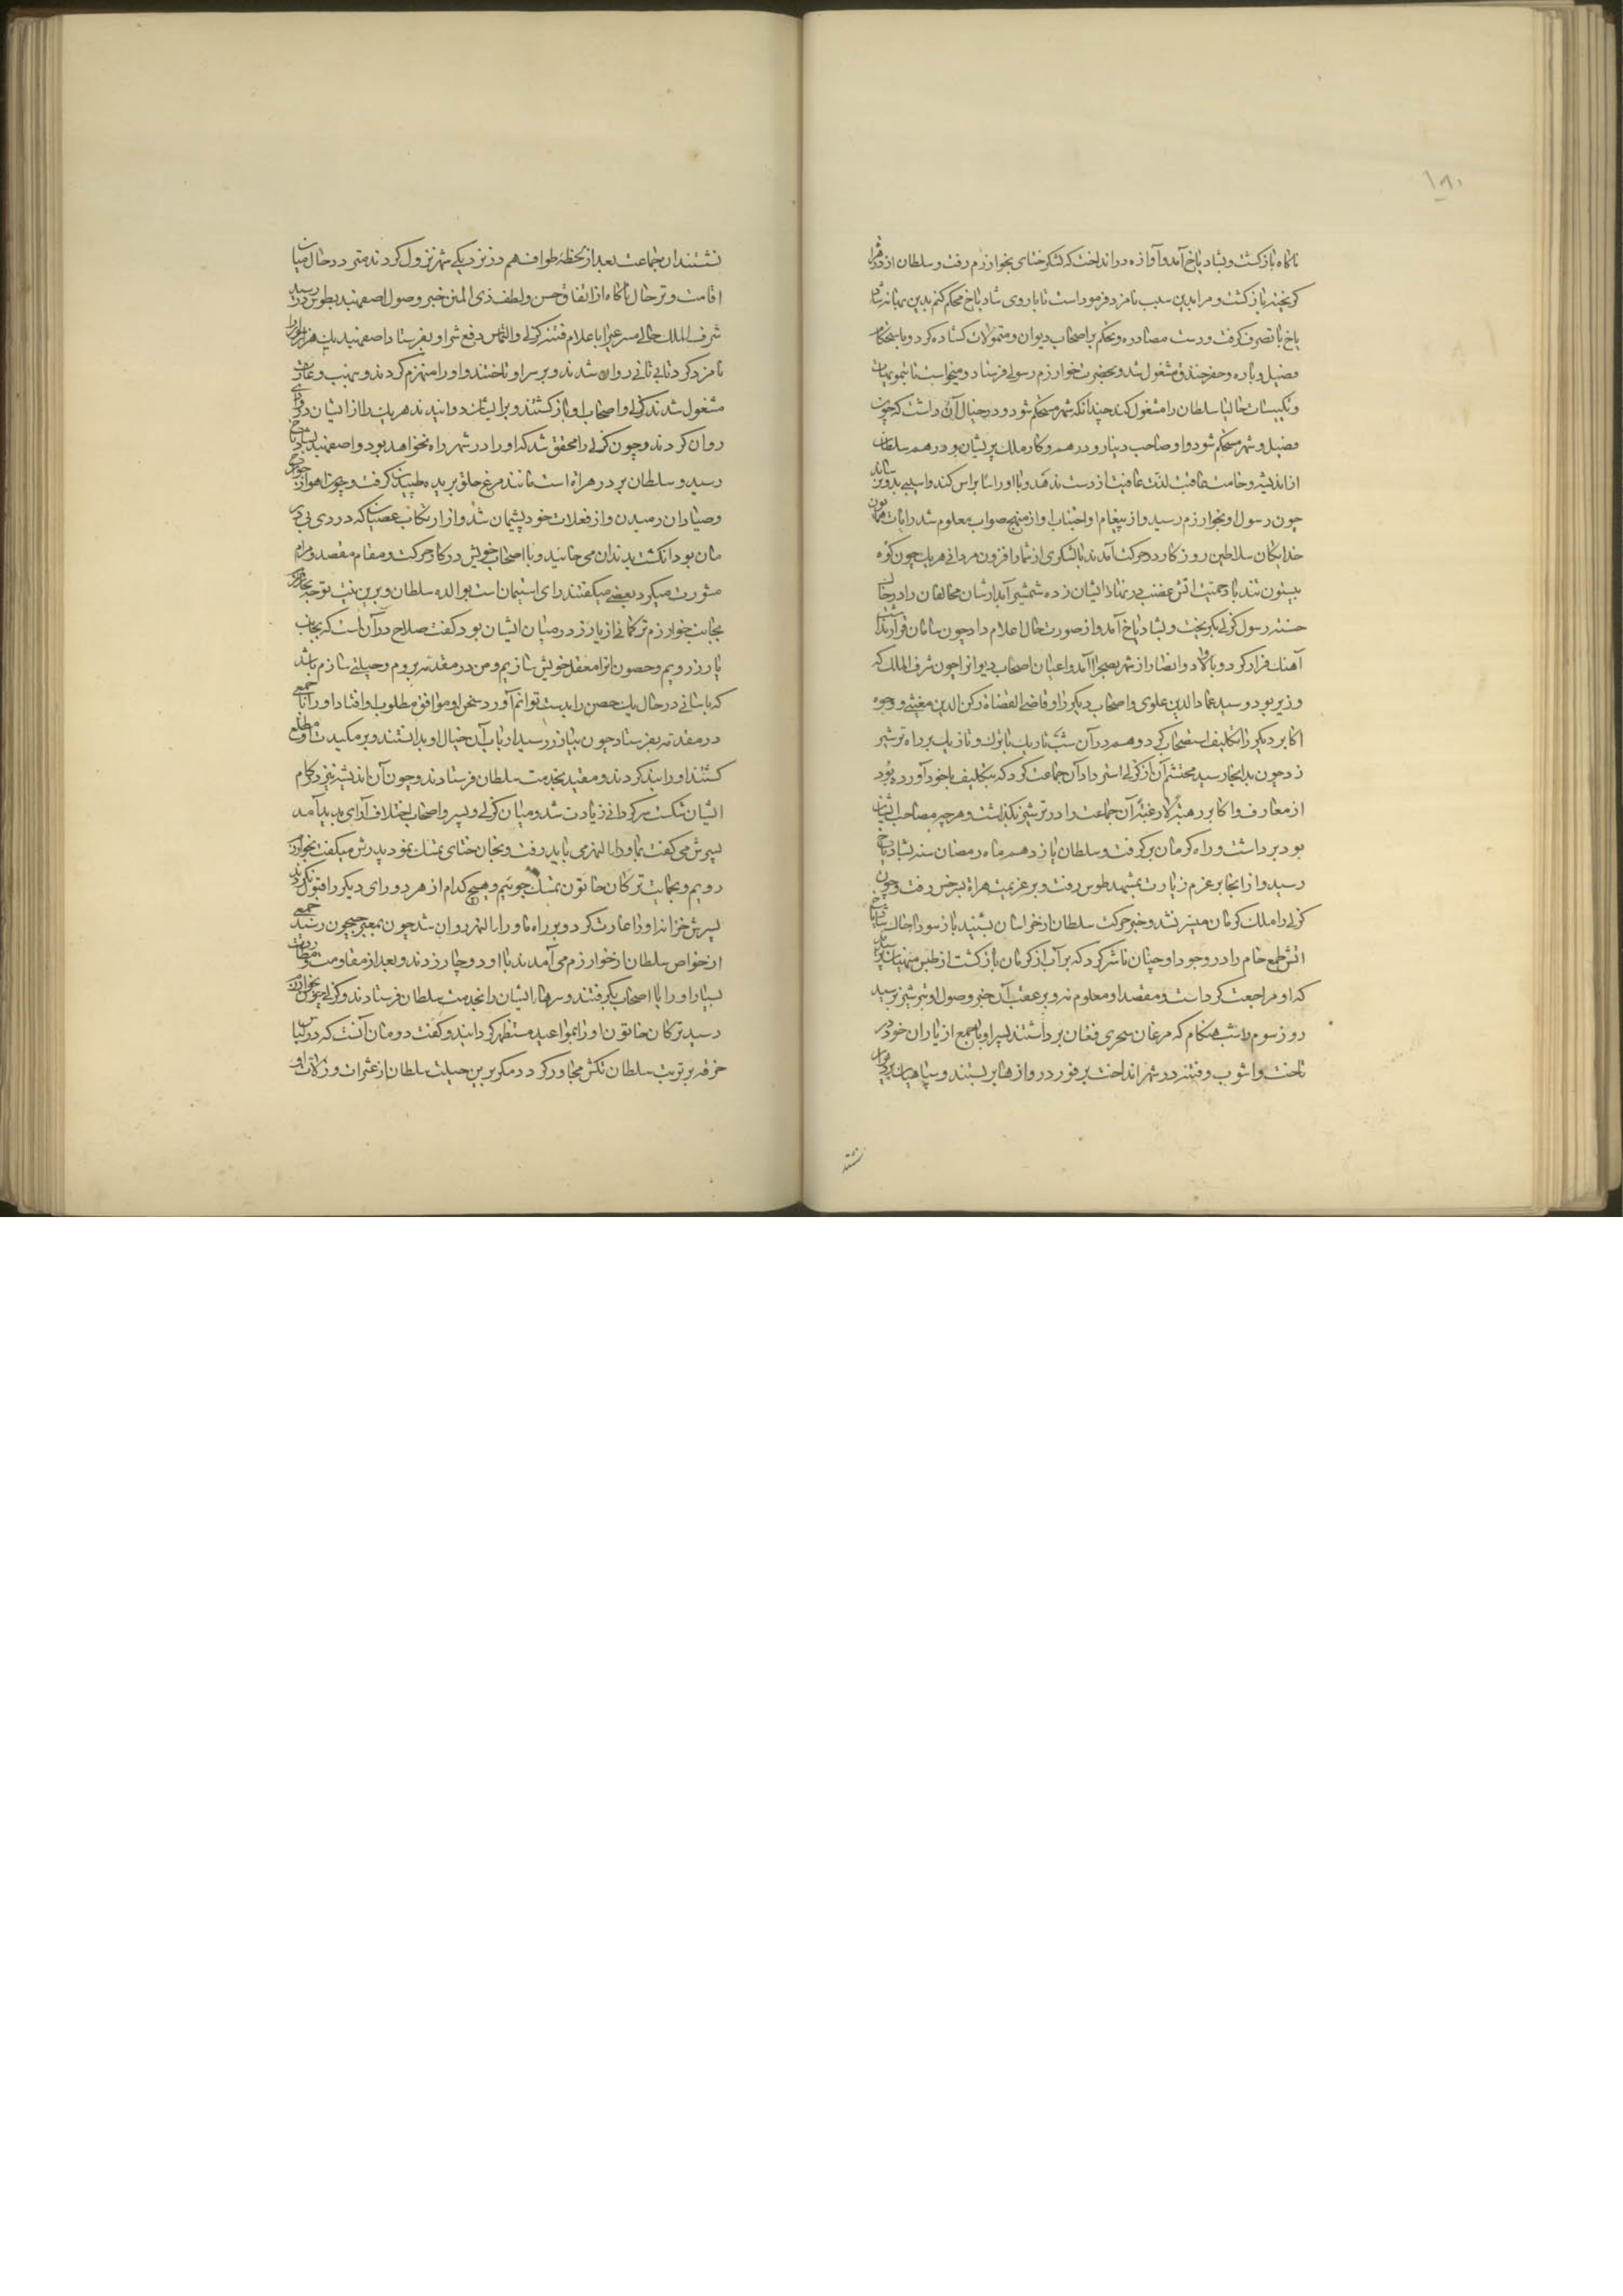 ۱۸۰
ناکاه بازکشت و بشادیاخ آمد و آوازه در انداخت که لشکر ختای بخوارزم رفت و سلطان از در هراة
کریخته بازکشت و مرا بدین سبب نامزد فرموداست تا باروی شادیاخ محکم کنم بدین بهانه شاد
یاخ با تصرف کرفت و دست مصادره و تحکم بر اصحاب دیوان و متمولان کشاده کرد و باستحکام
فصیل و باره و حفر خندق مشغول شد و بحضرت خوارزم رسولی فرستاد و میخواست تا بتمویهات
و تلبیسات حالیا سلطان را مشغول کند چندانکه شهر مستحکم شود و در خیال آن داشت که چون
فصیل و شهر مستحکم شود و او صاحب دینار و درهم و کار ملک پریشان و درهم سلطان
از اندیشه وخامت عاقبت لذت عافیت از دست ندهد و با او را سا براس کند و اسیبی بدو نرساند
چون رسول او بخوارزم رسید و از پیغام او اجتناب او از منهج صواب معلوم شد رایات همایون
خدایکان سلاطین روزکار در حرکت آمدند با لشکری از شمار افزون مردانی هر یک چون کوه
بیستون تند باد حمیت اتش غضب در نهاد ایشان زده شمشیر آبدارشان مخالفان را در خاک
خسته رسول کزلی بکریخت و بشادیاخ آمد و از صورت حال اعلام داد چون سامان قرار نداشت
آهنک فرار کرد و با اولاد و انصار از شهر بصحرا آمد و اعیان اصحاب دیوانرا چون شرف الملک که
وزیر بود و سید علاء الدین علوی و اصحاب دیکر را و قاضی القضاة رکن الدین مغیثی و وجوه
اکابر دیکر را بتکلیف استصحاب کرد و هم در آن شب تاریک با ترک و تازیک بر راه ترشیز
زد چون بدانجا رسید محتشم آن از کزلی استرداد آن جماعت کرد که بتکلیف با خود آورده بود
از معارف و اکابر رهبة لا رغبة آن جماعت را در ترشیز بکذاشت و هرچه مصاحب ایشان
بود برداشت و راه کرمان برکرفت و سلطان یازدهم ماه رمضان سنه بشادیاخ
رسید و از انجا بر عزم زیارت بمشهد طوس رفت و بر عزیمت هراة بسرخس رفت و چون
کزلی را ملک کرمان میسر نشد و خبر حرکت سلطان از خراسان بشنید باز سودا خاک شادیاخ
اتش طمع خام را در وجود او چنان ناشر کرد که بر آب از کرمان بازکشت از طبس منهیان برسیدند
که او مراجعت کرداست و مقصد او معلوم نه و بر عقب آن خبر وصول او بترشیز برسید
روز سوم را شب هنکام که مرغان سحری فغان برداشتند پسر او با جمع از یاران خود در
تاخت و اشوب و فتنه در شهر انداخت بر فور دروازها بر بستند و سپاهیان بر دیوار
نشتند
نشتند ان جماعت بعد از یک لحظه طواف هم در نزدیکی شهر نزول کردند متردد حال میان
اقامت و ترحال ناکاه از اتفاق حسن و لطف ذی المنن خبر وصول اصفهبد بطوس در رسید
شرف الملک حالی مسرعی را باعلام فتنه کزلی و التماس دفع شر او بفرستاد اصفهبد یک هزار سوار را
نامزد کرد تا بی تانی روان شدند و بر سر او تاختند و او را منهزم کردند و بنهب و غارت
مشغول شدند کزلی و اصحاب او بازکشتند و بر ایشان دوانیدند هر یک را از ایشان در وادی
روان کردند و چون کزلی را محقق شد که او را در شهر راه نخواهد بود و اصفهبد بشادیاخ
رسید و سلطان بر در هراة است مانند مرغ حلق بریده طپیدن کرفت و چون اهو از جوارح
و صیادان رمیدن و از فعلات خود پشیمان شد و از ارتکاب عصیان که دردی بی در
مان بود انکشت بدندان می خایید و با اصحاب خویش در کار حرکت و مقام مقصد و مرام
مشورت میکرد بعضی میکفتند رای استیمان است بوالده سلطان و برین نیت توجه باید کرد
بجانب خوارزم ترکمانی از یازر در میان ایشان بود کفت صلاح در آن است که بجانب
یازر رویم و حصون انرا معقل خویش سازیم و من در مقدمه بروم و حیلتی سازم باشد
که باسانی در حال یک حصن را بدست توانم آورد سخن او موافق مطلوب او افتاد او را با جمعی
در مقدمه بفرستاد چون بیازر رسید ارباب آن خیال او بدانستند و بر مکیدت او مطلع
کشتند او را بند کردند و مقید بخدمت سلطان فرستادند و چون آن اندیشه نیز در کام
ایشان شکست سرکردانی زیادت شد و میان کزلی و پسر و اصحاب اختلاف آرای پدید آمد
پسرش می کفت بماوراء النهر می باید رفت و بخان ختای تمسک نمود پدرش میکفت بخوارزم
رویم و بحمایت ترکان خاتون تمسک جوییم و هیچ کدام از هر دو رای دیکر را قبول نکردند
پسرش خزانه او را غارت کرد و بر راه ماوراء النهر روان شد چون بمعبر جیحون رسید جمعی
از خواص سلطان از خوارزم می آمدند با او دوچار زدند و بعد از مقاومت و مطاردت
بسیار او را با اصحاب بکرفتند و سرهای ایشان را بخدمت سلطان فرستادند و کزلی چون بخوارزم
رسید ترکان خاتون او را بمواعید مستظهر کردانید و کفت درمان آنست که در لباس
خرقه بر تربت سلطان تکش مجاور کردد مکر برین حیلت سلطان از عثرات و زلات او